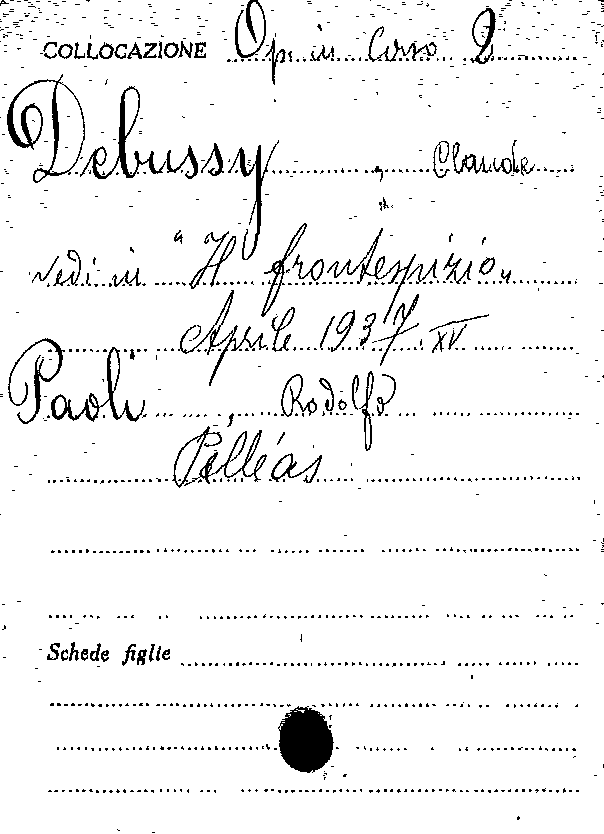 COLLOCAZIONE Op. in Corso 2
Debussy , Claude
vedi in "Il frontespizio"
Aprile 1937 XV
Paoli , Rodolfo
Pélléas
Schede figlie